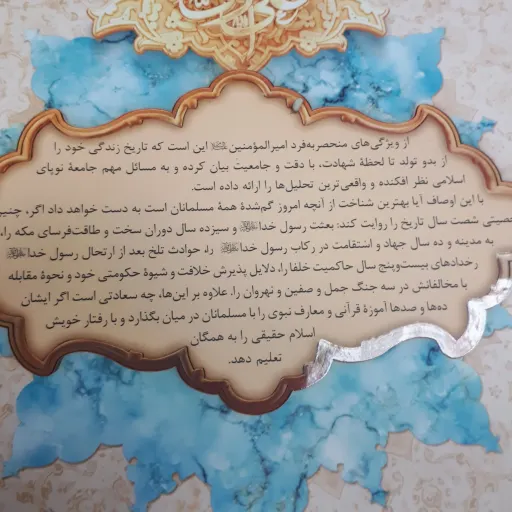 از ویژگی‌های منحصربه‌فرد امیرالمؤمنین این است که تاریخ زندگی خود را
از بدو تولد تا لحظهٔ شهادت، با دقت و جامعیت بیان کرده و به مسائل مهم جامعهٔ نوپای
اسلامی نظر افکنده و واقعی‌ترین تحلیل‌ها را ارائه داده است.
با این اوصاف آیا بهترین شناخت از آنچه امروز گم‌شدهٔ همهٔ مسلمانان است به دست نخواهد داد اگر، چنین
شخصیتی شصت سال تاریخ را روایت کند: بعثت رسول خدا و سیزده سال دوران سخت و طاقت‌فرسای مکه را،
به مدینه و ده سال جهاد و استقامت در رکاب رسول خدا را، حوادث تلخ بعد از ارتحال رسول خدا
رخدادهای بیست‌وپنج سال حاکمیت خلفا را، دلایل پذیرش خلافت و شیوهٔ حکومتی خود و نحوهٔ مقابله
با مخالفانش در سه جنگ جمل و صفین و نهروان را. علاوه بر این‌ها، چه سعادتی است اگر ایشان
ده‌ها و صدها آموزهٔ قرآنی و معارف نبوی را با مسلمانان در میان بگذارد و با رفتار خویش
اسلام حقیقی را به همگان
تعلیم دهد.